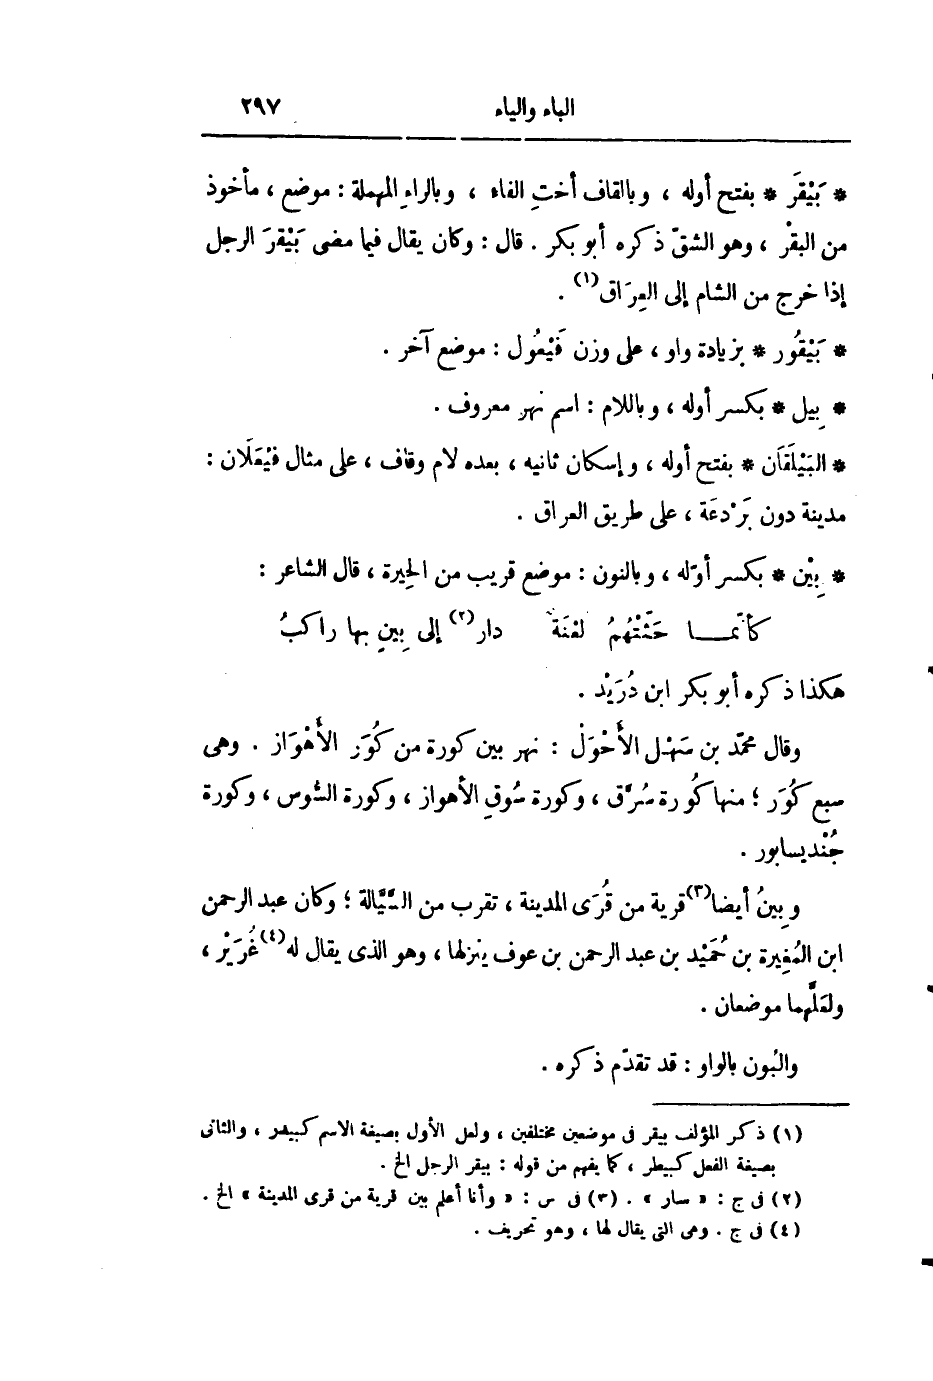 الباء والياء ٢٩٧
* بَيْقَر * بفتح أوله ، وبالقاف أختِ الفاء ، وبالراءِ المهملة : موضع ، مأخوذ
من البقْر ، وهو الشقّ ذكره أبو بكر . قال : وكان يقال فيما مضى بَيْقرَ الرجل
إذا خرج من الشام إلى العِرَاق(١) .
* بَيْقُور * بزيادة واو ، على وزن فَيْعُول : موضع آخر .
* بِيل * بكسر أوله ، وباللام : اسم نهر معروف .
* البَيْلَقَان * بفتح أوله ، وإسكان ثانيه ، بعده لام وقاف ، على مثال فَيْعَلَان :
مدينة دون بَرْدعَة ، على طريق العراق .
* بِيْن * بكسر أوّله ، وبالنون : موضع قريب من الحِيرة ، قال الشاعر :
كأنّمـــا حَثَّتْهُمُ لعْنَةٌ دار(٢) إلى بِينٍ بها راكبُ
هكذا ذكره أبو بكر ابن دُرَيْد .
وقال محمّد بن سَهْل الأَحْوَلْ : نهر بين كورة من كُوَر الأَهْوَاز . وهى
سبع كُوَر ؛ منها كُورة سُرَّق ، وكورة سُوقِ الأهواز ، وكورة السُّوس ، وكورة
جُنْديسابور .
وبِينُ أيضا(٣) قرية من قُرَى المدينة ، تقرب من السَّيَّالة ؛ وكان عبد الرحمن
ابن المُغِيرة بن حُمَيْد بن عبد الرحمن بن عوف ينزلها ، وهو الذى يقال له(٤) غُرَيْر ،
ولعَلَّهما موضعان .
والبُون بالواو : قد تقدّم ذكره .
(١) ذكر المؤلف بيقر فى موضعين مختلفين ، ولعل الأول بصيغة الاسم كبيهر ، والثانى
بصيغة الفعل كبيطر ، كما يفهم من قوله : بيقر الرجل الخ .
(٢) فى ج : « سار » . (٣) فى س : « وأنا أعلم بين قرية من قرى المدينة » الخ .
(٤) فى ج . وهى التى يقال لها ، وهو تحريف .